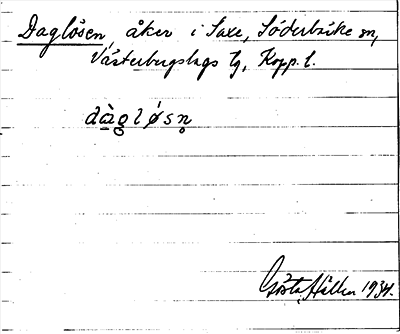 Daglösen, åker i Saxe, Söderbärke sn,
Västerbergslags tg, Kopp. l.
dàgløsn̥
Gösta Hallen 1934.